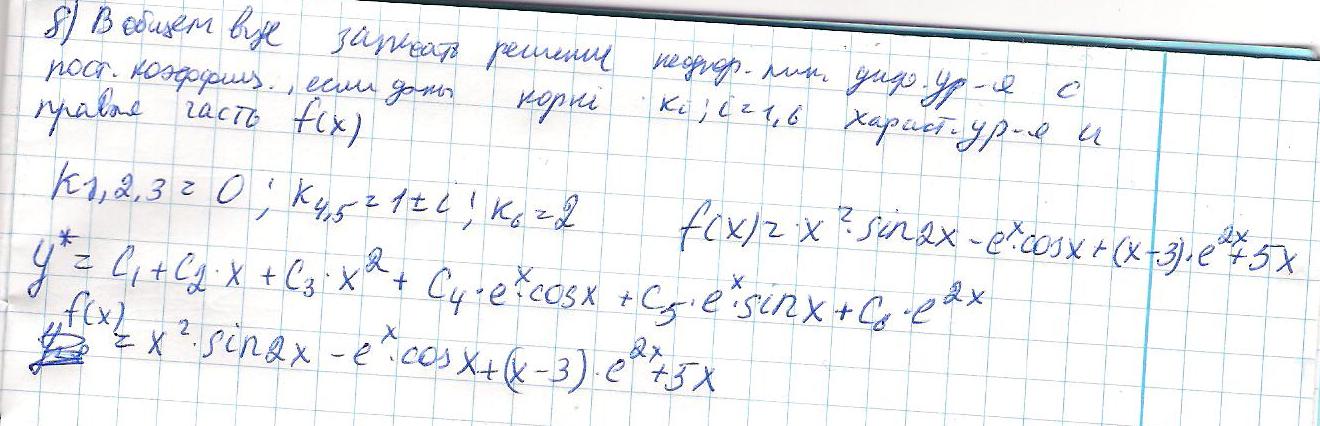 8) В общем виде записать решение неоднор. лин. диф. ур-я с
пост. коэффиц., если даны корні ki; i=1,6 характ. ур-я и
правая часть f(x)
k1,2,3 = 0; k4,5 = 1±i; k6 = 2 f(x) = x²·sin2x - eˣ·cosx + (x-3)·e²ˣ + 5x
y* = C₁ + C₂·x + C₃·x² + C₄·eˣ·cosx + C₅·eˣ·sinx + C₆·e²ˣ
f(x) = x²·sin2x - eˣ·cosx + (x-3)·e²ˣ + 5x